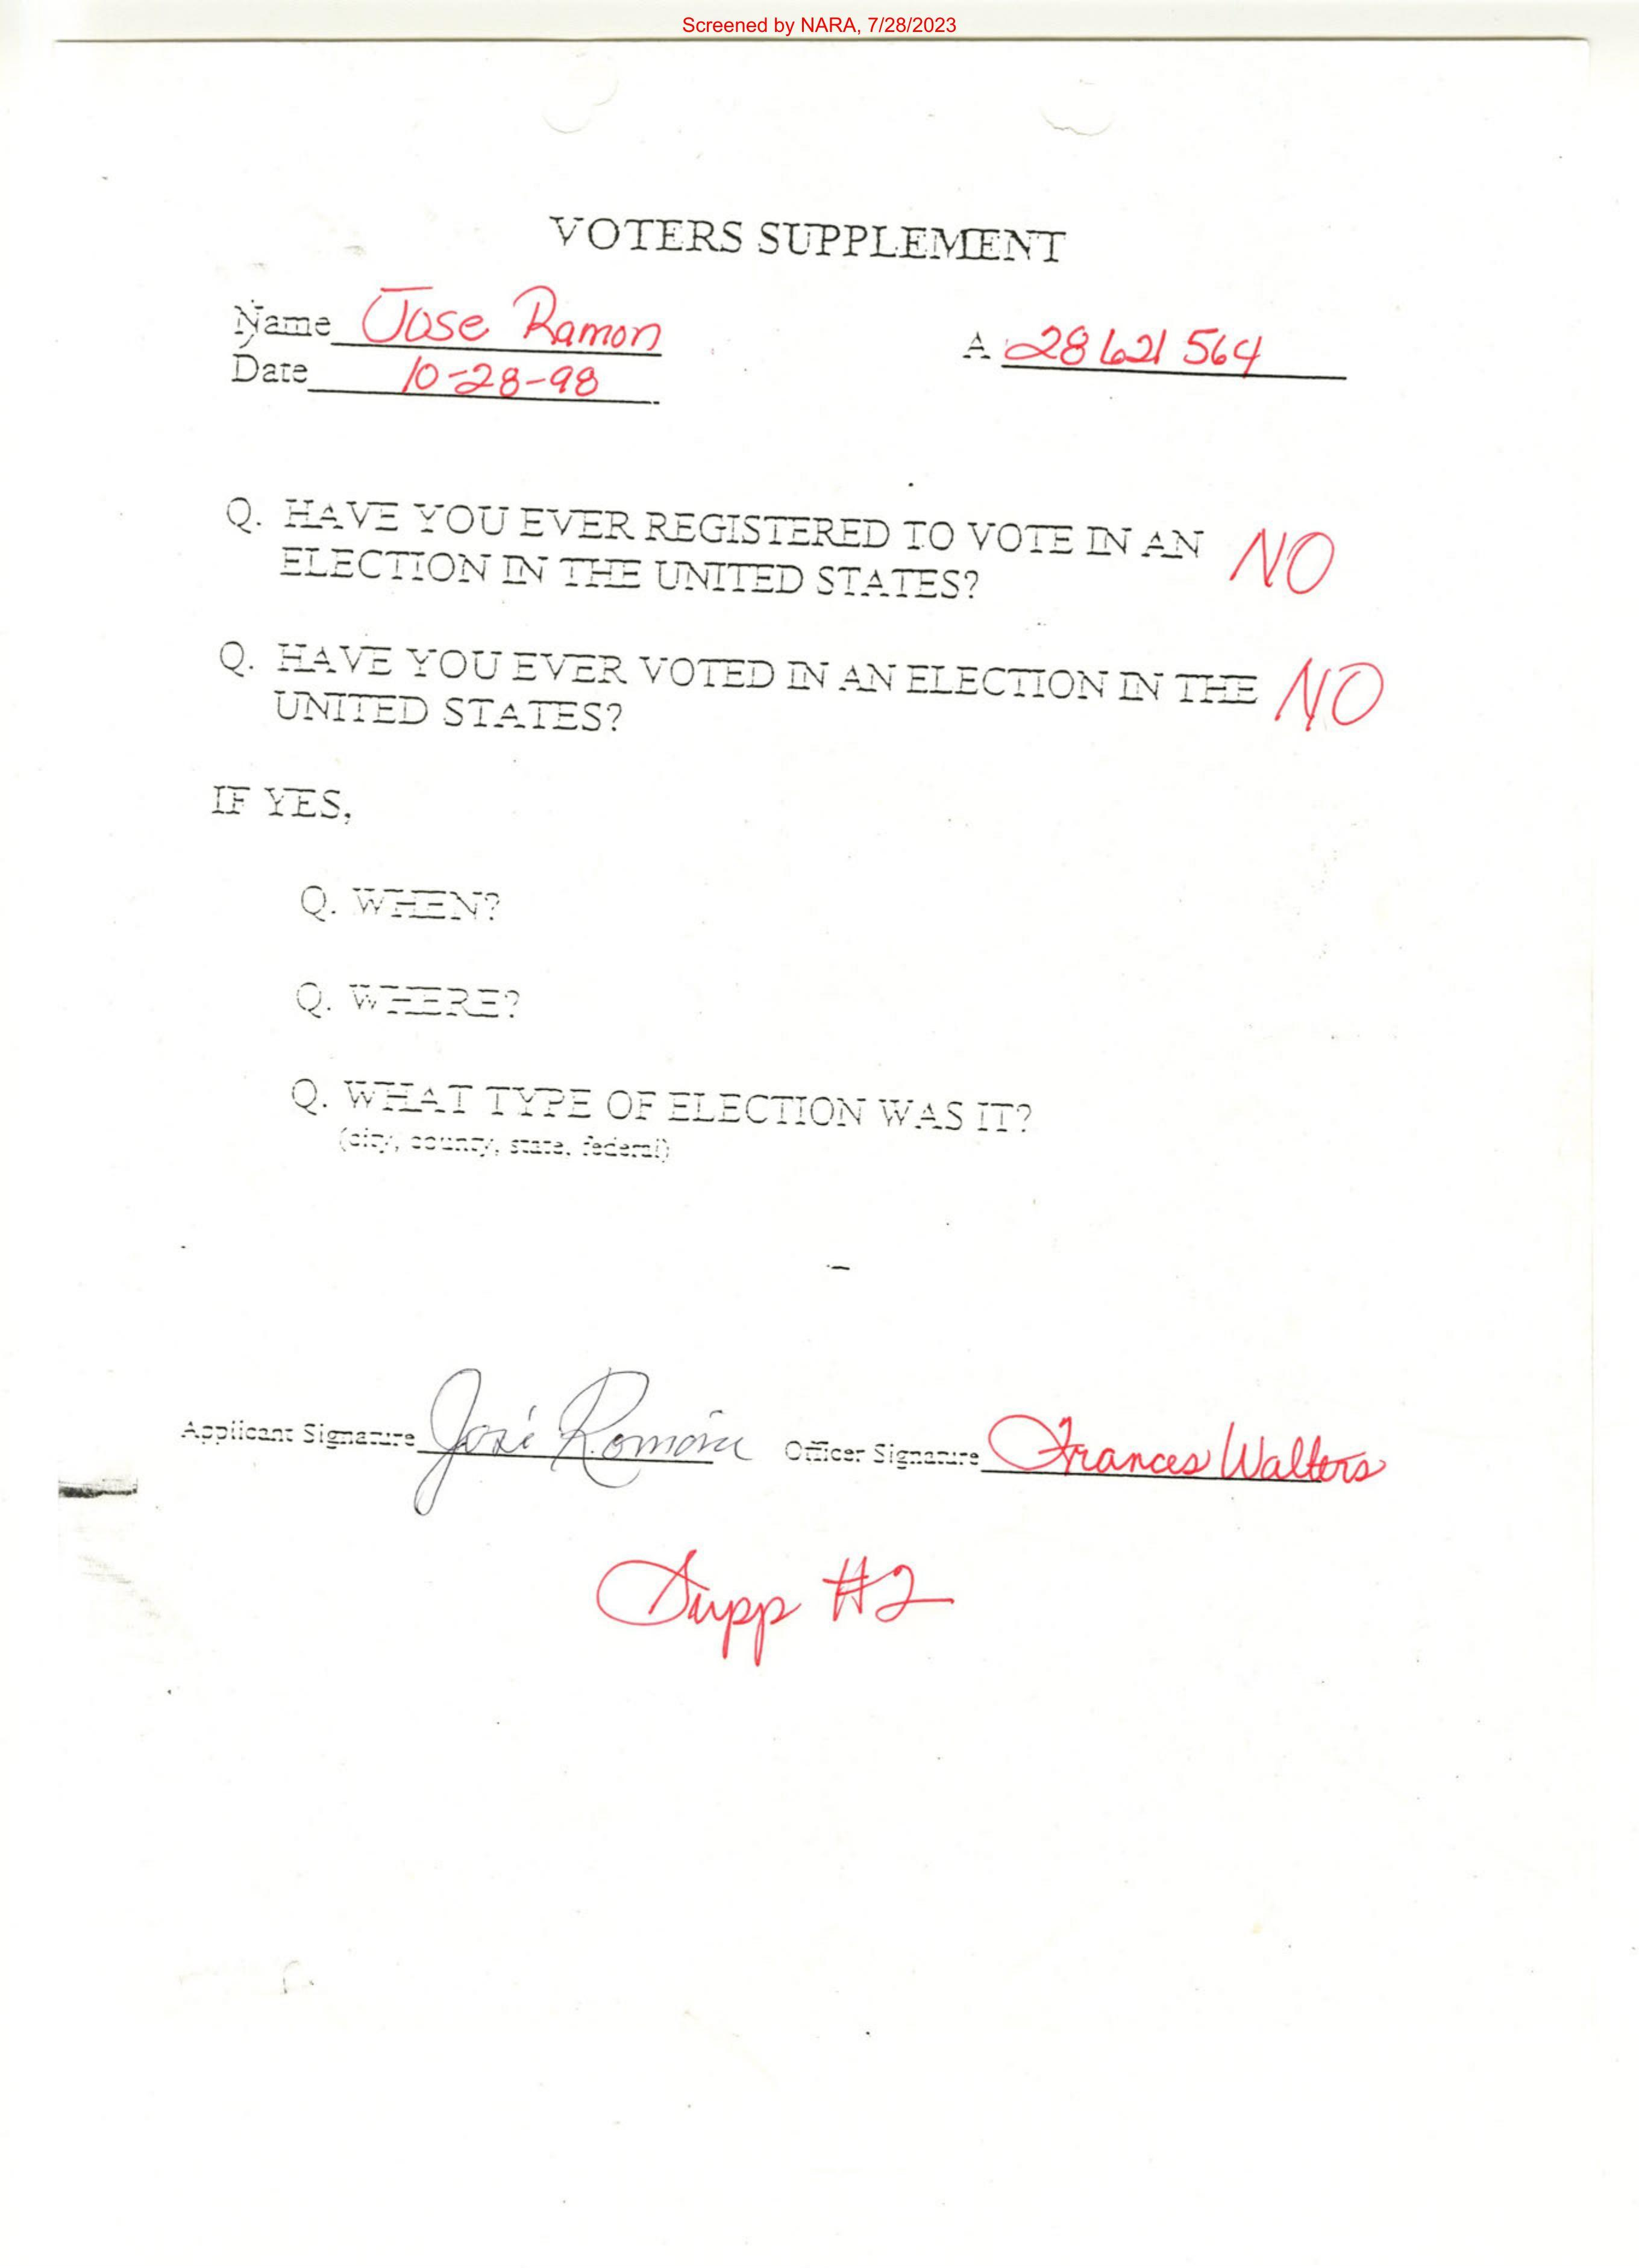 Screened by NARA, 7/28/2023
VOTERS SUPPLEMENT
Name Jose Ramon
A 28 621 564
Date 10-28-98
Q. HAVE YOU EVER REGISTERED TO VOTE IN AN NO
ELECTION IN THE UNITED STATES?
Q. HAVE YOU EVER VOTED IN AN ELECTION IN THE NO
UNITED STATES?
IF YES,
Q. WHEN?
Q. WHERE?
Q. WHAT TYPE OF ELECTION WAS IT?
(city, county, state, federal)
Applicant Signature José Officer Signature Frances Walters
Supp #2